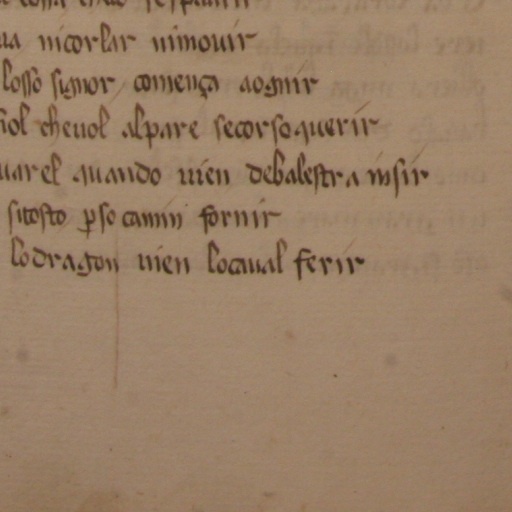 nicorlar nimouir
losso signor comença aognir
chevol alpare secorso querir
quarel quando uien debalestra insir
sitosto ꝑso camin fornir
lo dragon uien locaual ferir